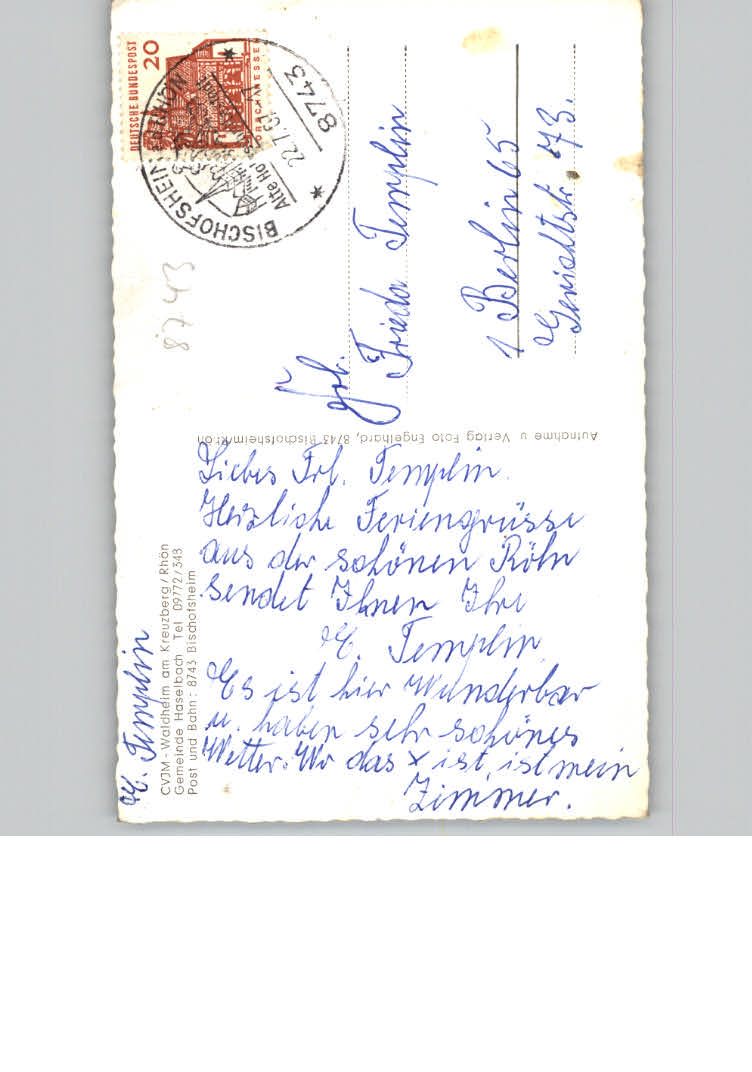 H. Templin
CVJM-Waldheim am Kreuzberg/Rhön
Gemeinde Haselbach Tel 09772/343
Post und Bahn: 8743 Bischofsheim
Liebes Frl. Templin
Herzliche Feriengrüsse
aus der schönen Röhn
sendet Ihnen Ihre
H. Templin
Es ist hier Wunderbar
u. haben sehr schönes
Wetter. Wo das x ist, ist mein
Zimmer.
Aufnahme u Verlag Foto Engelhard, 8743 Bischofsheim/Rhön
DEUTSCHE BUNDESPOST
20
8743
BISCHOFSHEIM
22.7.
8743
Frl.
Frieda Templin
1 Berlin 65
Gerichtstr. 73.